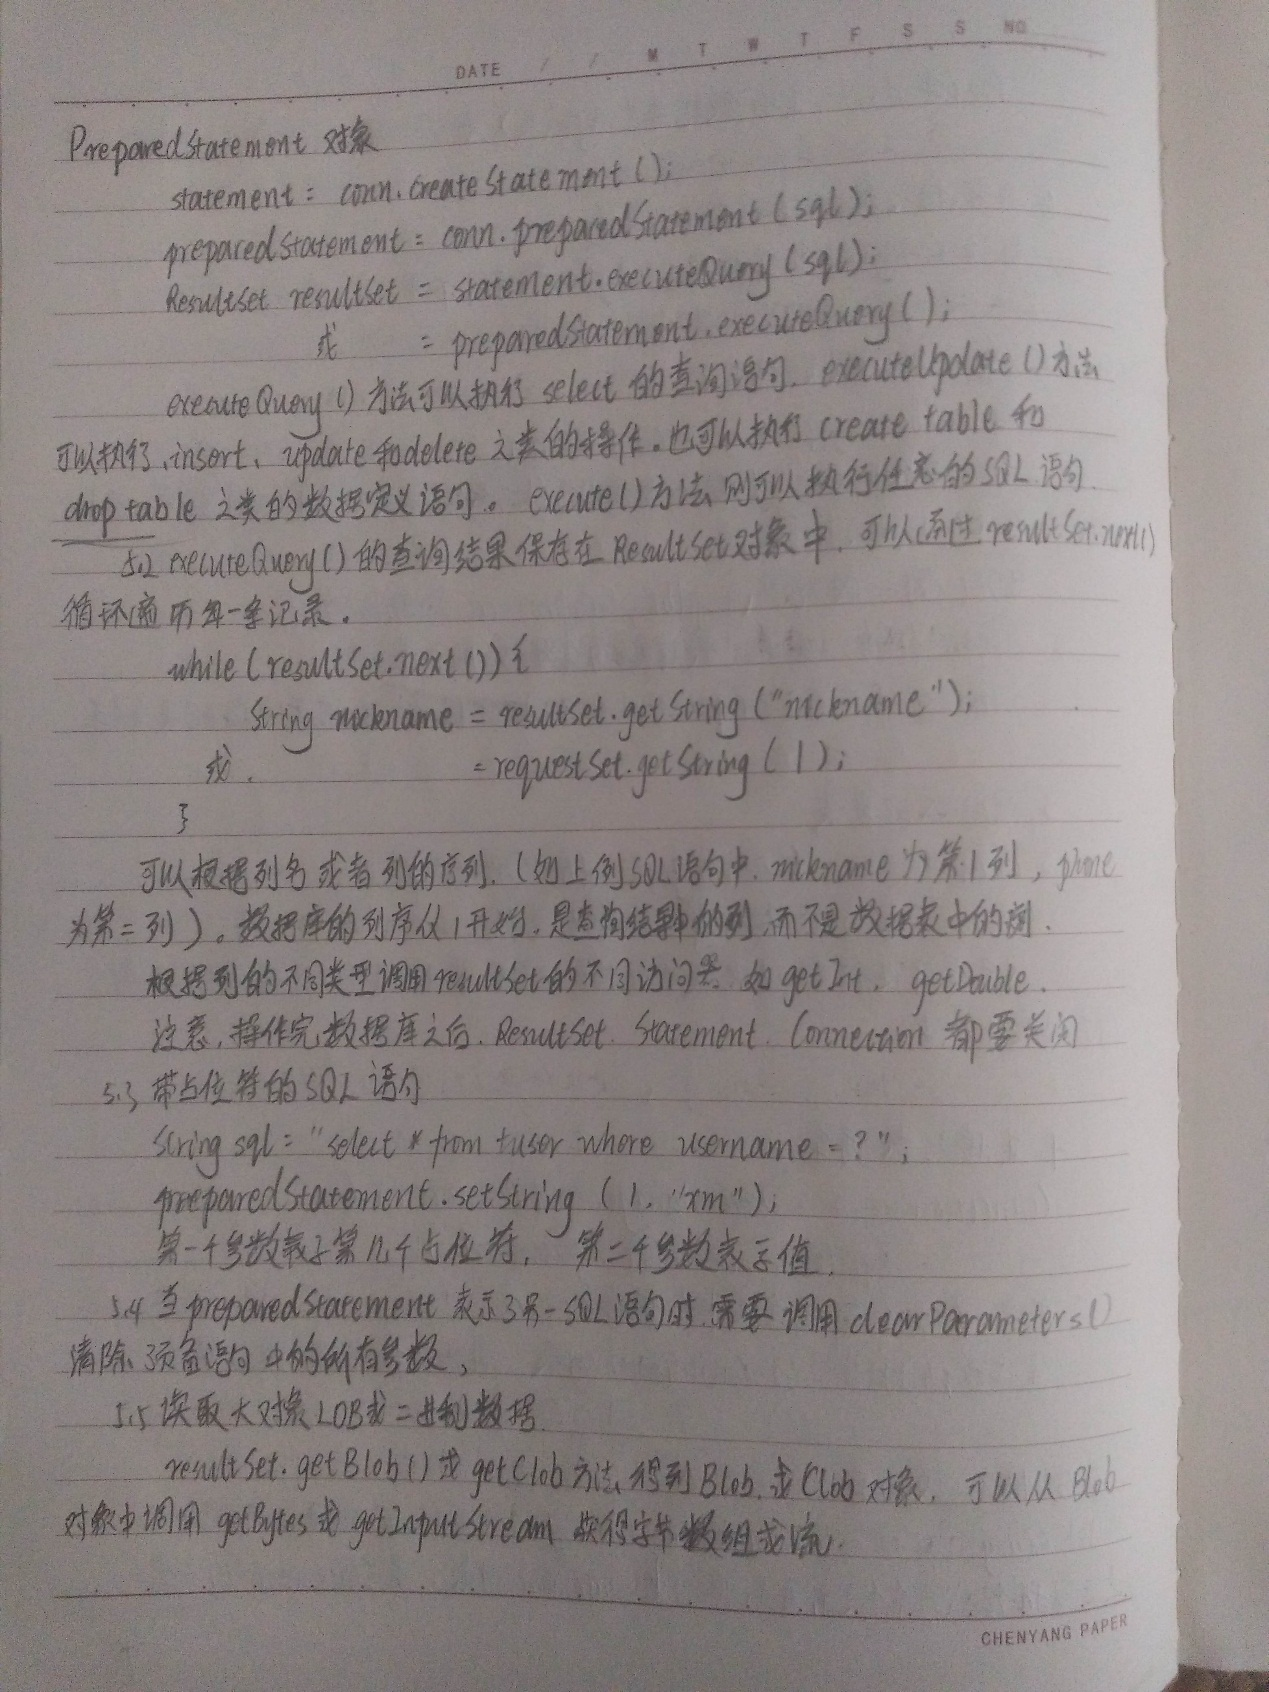 DATE / / M T W T F S S NO
PreparedStatement 对象
statement = conn.createStatement();
preparedStatement = conn.preparedStatement(sql);
ResultSet resultSet = statement.executeQuery(sql);
或 = preparedStatement.executeQuery();
executeQuery()方法可以执行 select 的查询语句. executeUpdate()方法
可以执行、insert、update和delete 之类的操作。也可以执行 create table 和
drop table 之类的数据定义语句。execute()方法则可以执行任意的SQL语句
5.2 executeQuery()的查询结果保存在ResultSet对象中,可以通过resultSet.next()
循环遍历每一条记录.
while(resultSet.next()){
String nickname = resultSet.getString("nickname");
或. =requestSet.getString(1);
}
可以根据列名或者列的序列.(如上例SQL语句中. nickname 为第1列, phone
为第二列)。数据库的列序从1开始.是查询结果中的列,而不是数据表中的列.
根据列的不同类型调用resultSet的不同访问器. 如getInt. getDouble.
注意,操作完数据库之后. ResultSet. Statement. Connection 都要关闭
5.3 带占位符的SQL语句
String sql = "select * from tuser where username = ?";
preparedStatement.setString(1, "xm");
第一个参数表示第几个占位符, 第二个参数表示值.
5.4 当preparedStatement 表示了另一SQL语句时,需要 调用clearParameters()
清除预备语句中的所有参数,
5.5 读取大对象LOB或二进制数据
resultSet.getBlob()或getClob方法,得到Blob.或Clob对象. 可以从Blob
对象中调用 getBytes 或 getInputStream 获得字节数组或流.
CHENYANG PAPER